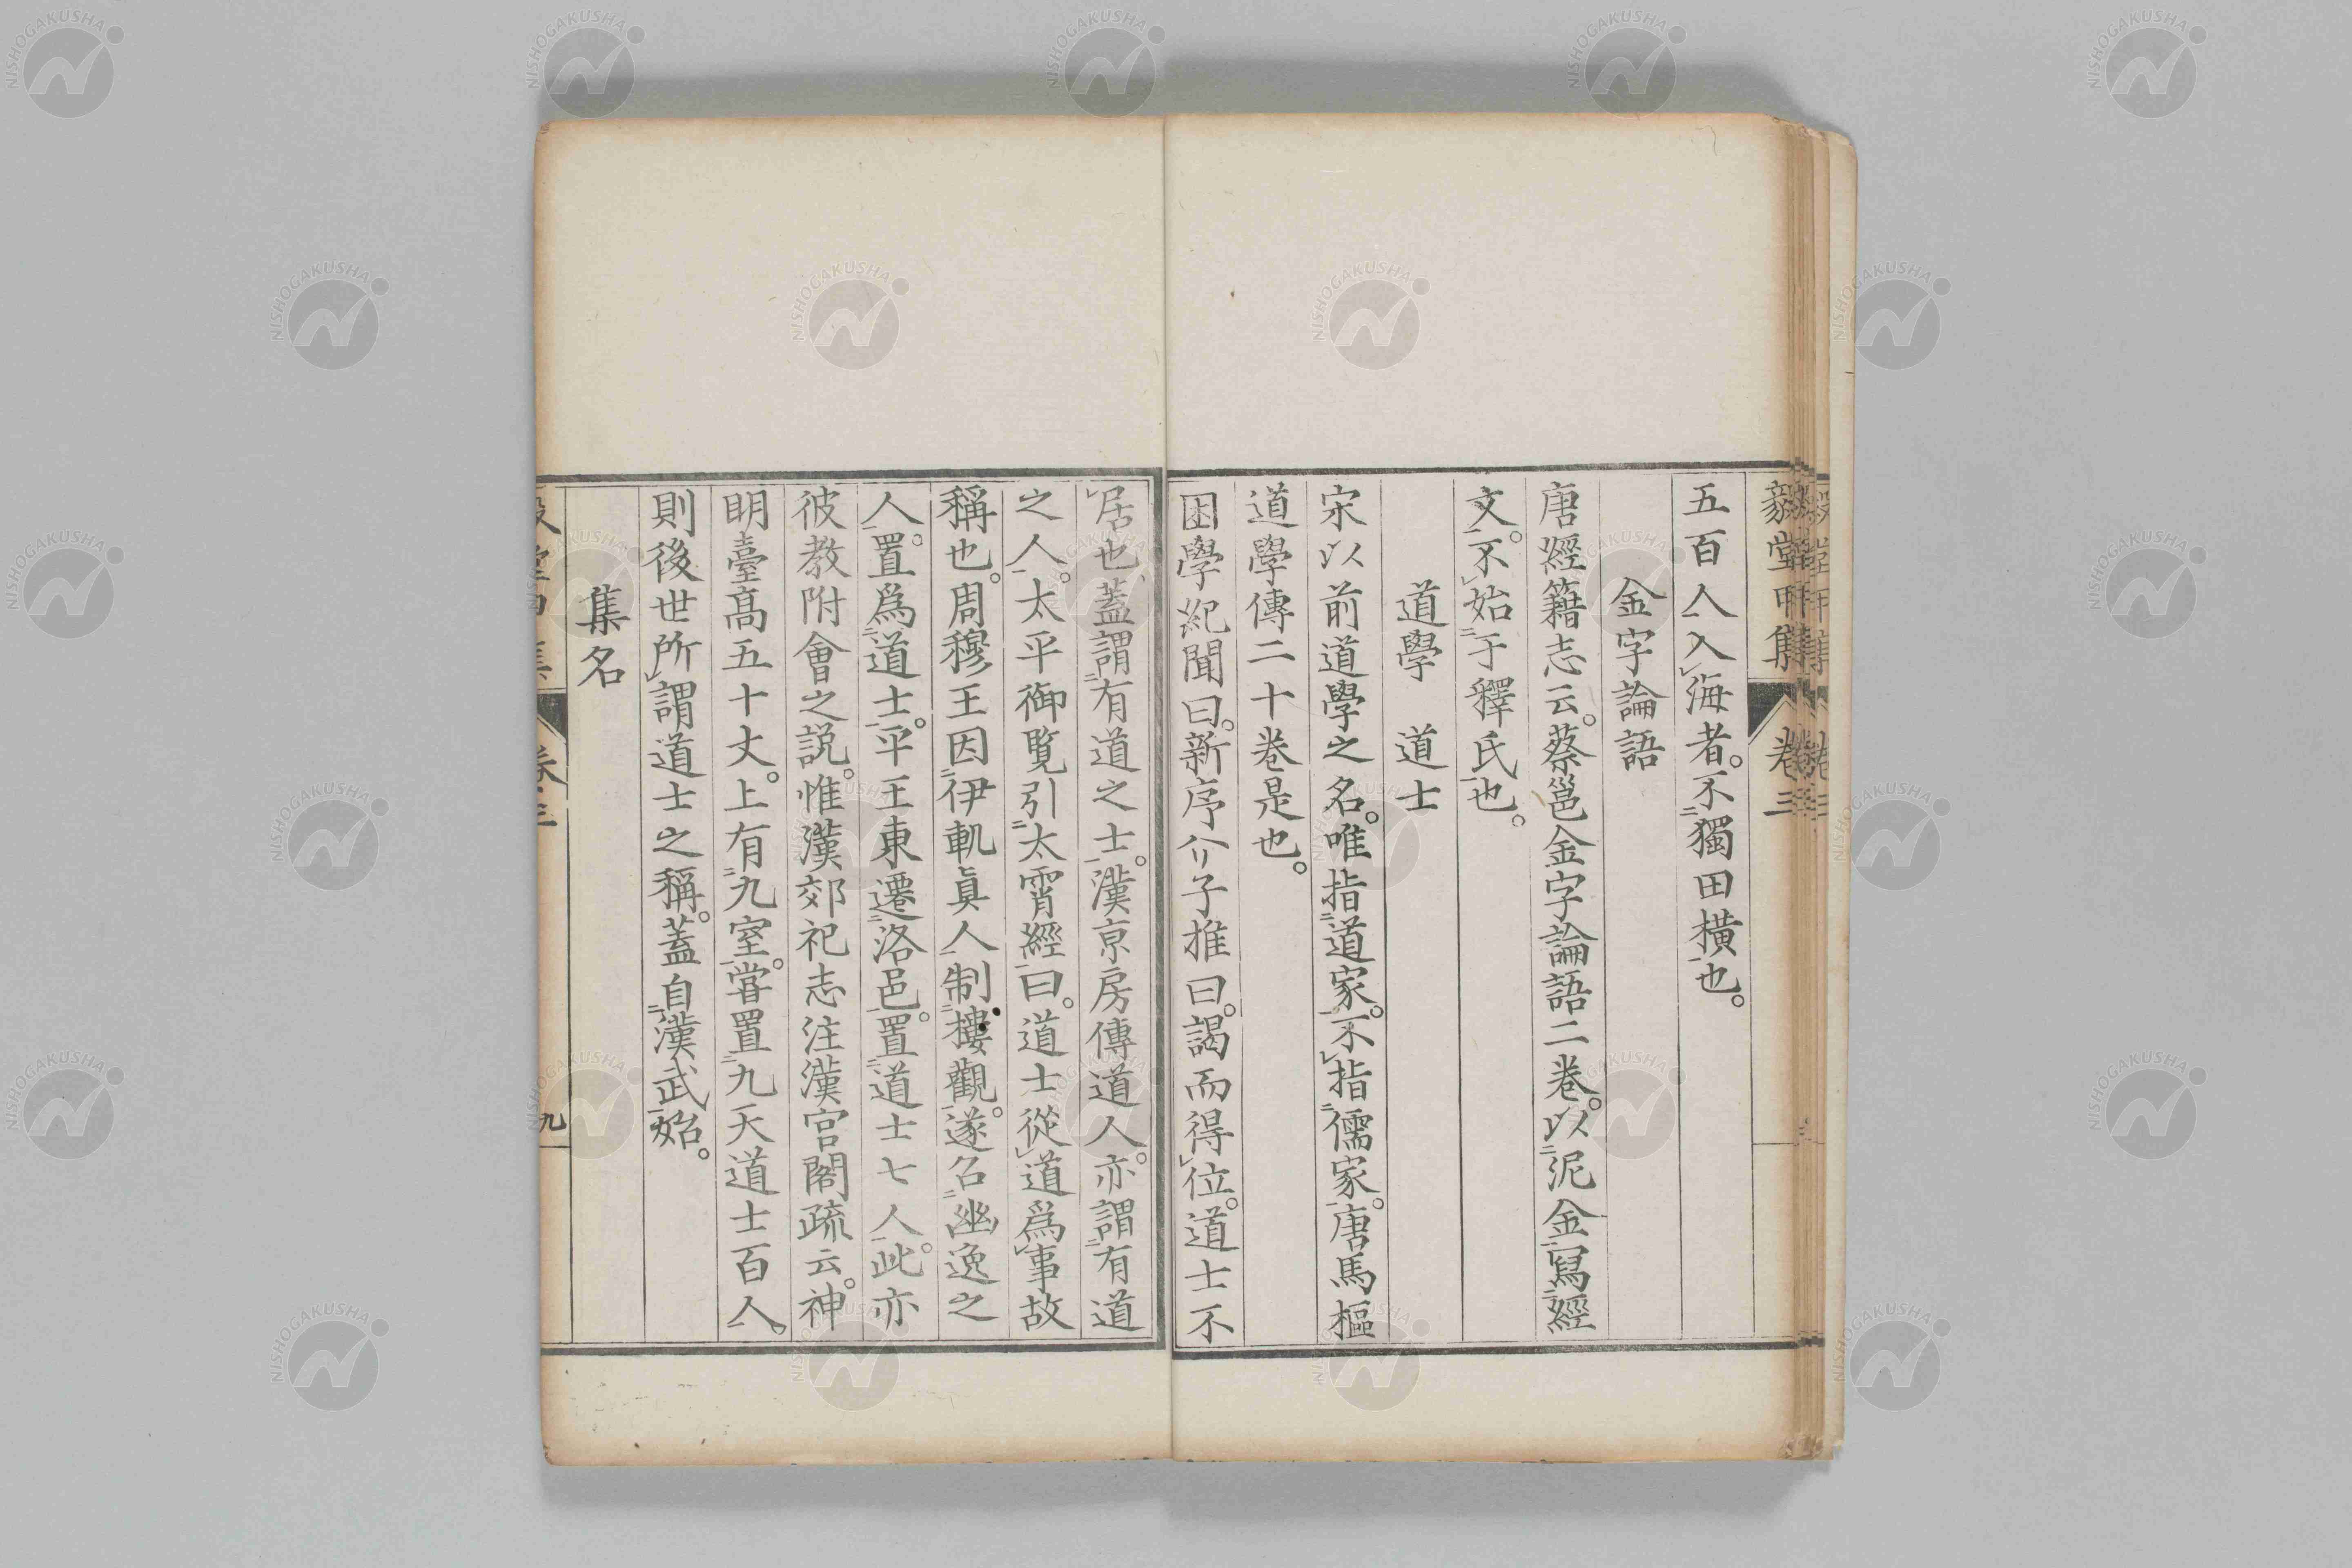 毅堂丙集 卷三
五百人入海者。不獨田橫也。
金字論語
唐經籍志云。蔡邕金字論語二卷。以泥金寫經
文。不始于釋氏也。
道學 道士
宋以前道學之名。唯指道家。不指儒家。唐馬樞
道學傳二十卷是也。
困學紀聞曰。新序介子推曰。謁而得位。道士不
居也。蓋謂有道之士。漢京房傳道人。亦謂有道
之人。太平御覽引太霄經曰。道士從道爲事故
稱也。周穆王因伊軌眞人制樓觀。遂召幽逸之
人。置爲道士。平王東遷洛邑。置道士七人。此亦
彼教附會之説。惟漢郊祀志注漢宮閣疏云。神
明臺高五十丈。上有九室。嘗置九天道士百人。
則後世所謂道士之稱。蓋自漢武始。
集名
九
NISHOGAKUSHA